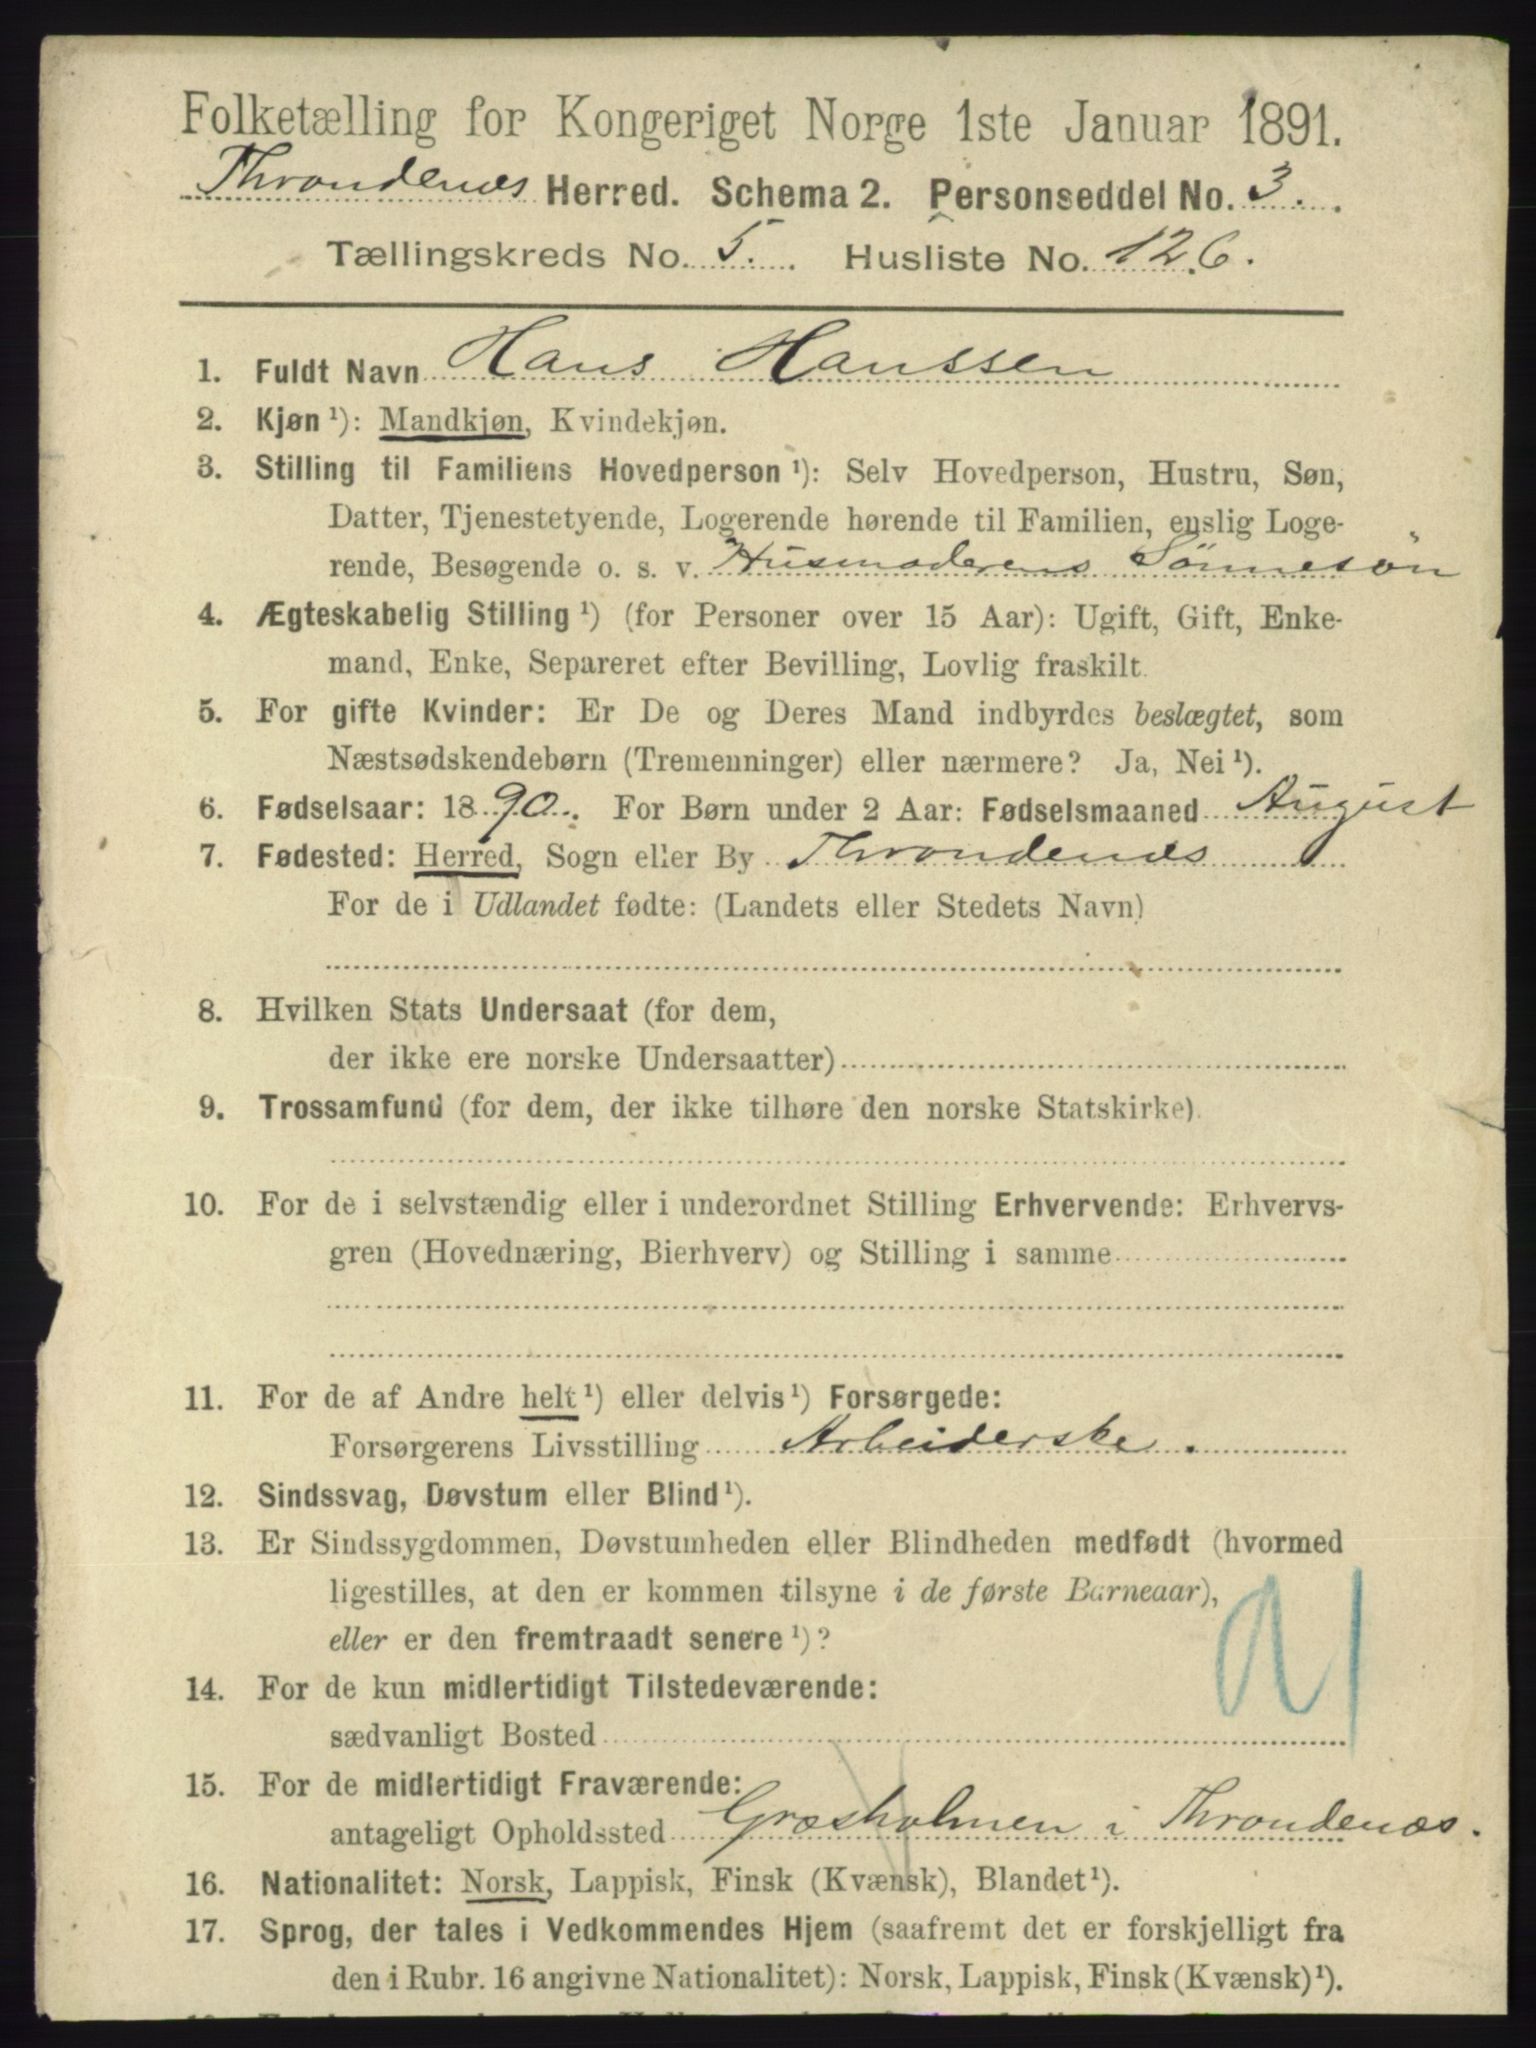 Folketælling for Kongeriget Norge 1ste Januar 1891.
Throndenæs Herred. Schema 2. Personseddel No. 3.
Tællingskreds No. 5. Husliste No. 126.
1. Fuldt Navn Hans Hanssen
2. Kjøn ¹): Mandkjøn, Kvindekjøn.
3. Stilling til Familiens Hovedperson ¹): Selv Hovedperson, Hustru, Søn,
Datter, Tjenestetyende, Logerende hørende til Familien, enslig Loge-
rende, Besøgende o. s. v. Husmoderens Sönnesön
4. Ægteskabelig Stilling ¹) (for Personer over 15 Aar): Ugift, Gift, Enke-
mand, Enke, Separeret efter Bevilling, Lovlig fraskilt.
5. For gifte Kvinder: Er De og Deres Mand indbyrdes beslægtet, som
Næstsødskendebørn (Tremenninger) eller nærmere? Ja, Nei ¹).
6. Fødselsaar: 1890. For Børn under 2 Aar: Fødselsmaaned August
7. Fødested: Herred, Sogn eller By Throndenæs
For de i Udlandet fødte: (Landets eller Stedets Navn)
8. Hvilken Stats Undersaat (for dem,
der ikke ere norske Undersaatter)
9. Trossamfund (for dem, der ikke tilhøre den norske Statskirke).
10. For de i selvstændig eller i underordnet Stilling Erhvervende: Erhvervs-
gren (Hovednæring, Bierhverv) og Stilling i samme
11. For de af Andre helt ¹) eller delvis ¹) Forsørgede:
Forsørgerens Livsstilling Arbeiderske.
12. Sindssvag, Døvstum eller Blind ¹).
13. Er Sindssygdommen, Døvstumheden eller Blindheden medfødt (hvormed
ligestilles, at den er kommen tilsyne i de første Barneaar),
eller er den fremtraadt senere ¹)?
14. For de kun midlertidigt Tilstedeværende:
sædvanligt Bosted
15. For de midlertidigt Fraværende:
antageligt Opholdssted Græsholmen i Throndenæs.
16. Nationalitet: Norsk, Lappisk, Finsk (Kvænsk), Blandet ¹).
17. Sprog, der tales i Vedkommendes Hjem (saafremt det er forskjelligt fra
den i Rubr. 16 angivne Nationalitet): Norsk, Lappisk, Finsk (Kvænsk) ¹).